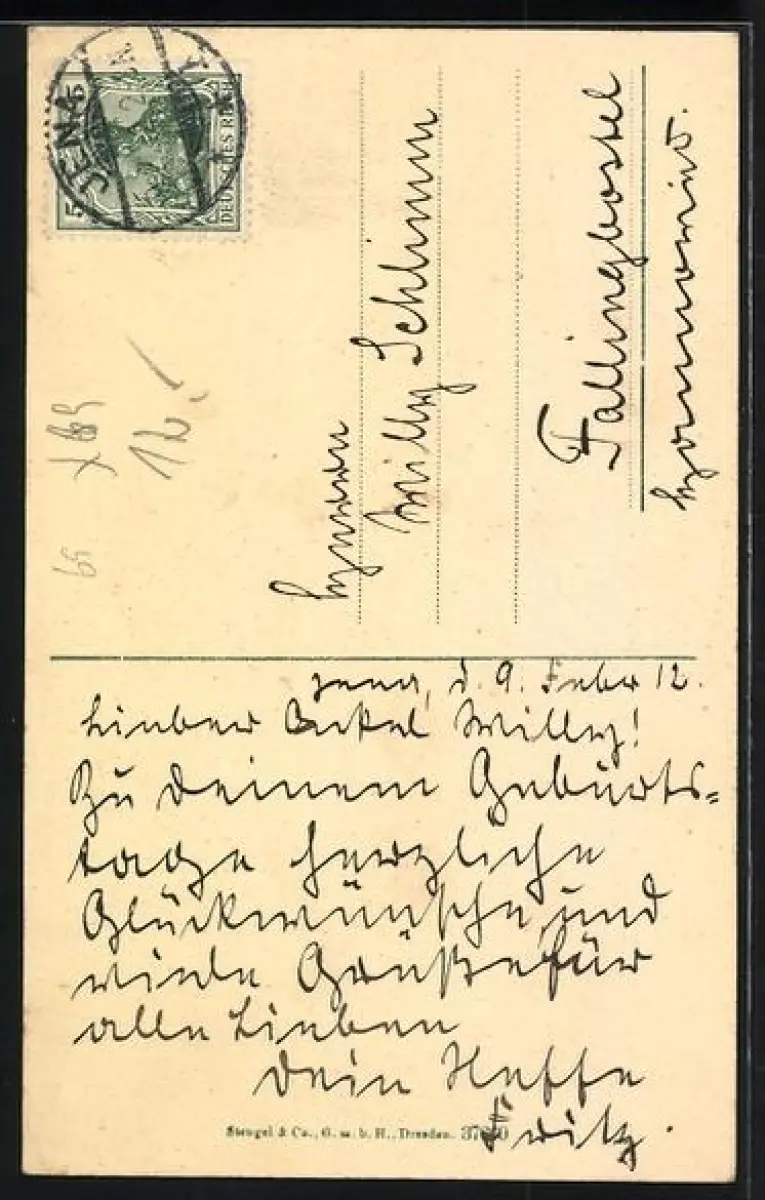 JENA
5 5
DEUTSCHES REICH
Herrn
Willy Schlimm
Fallingbostel
Hannover.
12.
Jena, d. 9. Febr 12.
Lieber Onkel Willy!
Zu Deinem Geburts=
tage herzliche
Glückwünsche und
viele Grüße für
alle Lieben
Dein Neffe
Fritz.
Stengel & Co., G. m. b. H., Dresden.